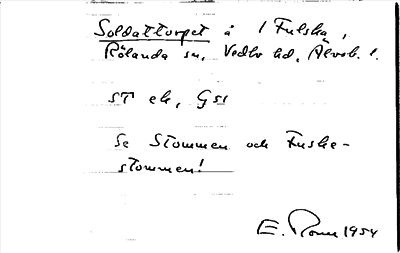 Soldattorpet å 1 Fulska,
Rölanda sn, Vedbo hd, Älvsb. l.
ST ek, Gsl
Se Stommen och Fuske-
stommen!
E. 1954